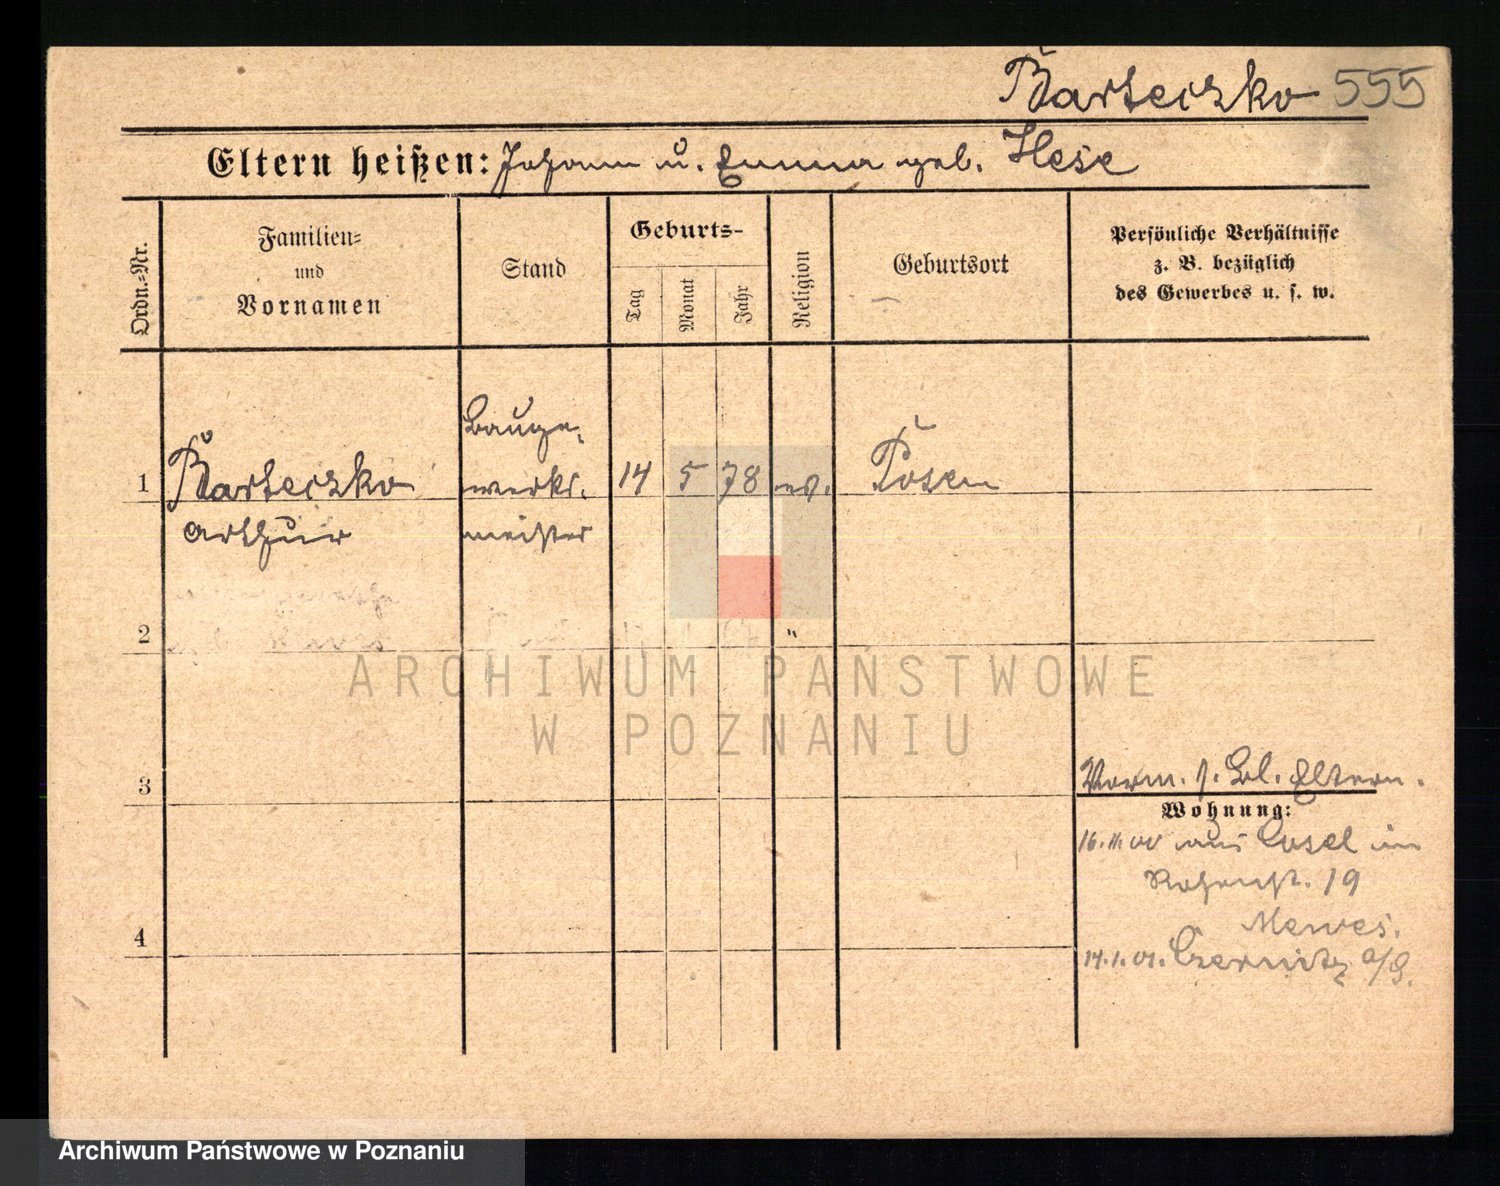 Barteczko 555
Eltern heißen: Johann u. Emma geb. Hese
Ordn.-Nr.
Familien-
und
Vornamen
Stand
Geburts-
Tag
Monat
Jahr
Religion
Geburtsort
Persönliche Verhältnisse
z. B. bezüglich
des Gewerbes u. s. w.
1 Barteczko
Arthur
Bauge-
werks-
meister
14 5 78 ev. Posen
2 "
ARCHIWUM PAŃSTWOWE
W POZNANIU
3
Vorm. s. Bl. Eltern.
Wohnung:
16.11.00 aus Cosel in
19
Mewes.
4
14.1.01. Czernitz a/S.
Archiwum Państwowe w Poznaniu